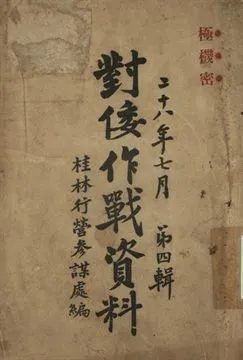 極機密
二十八年七月 第四輯
對倭作戰資料
桂林行營參謀處編